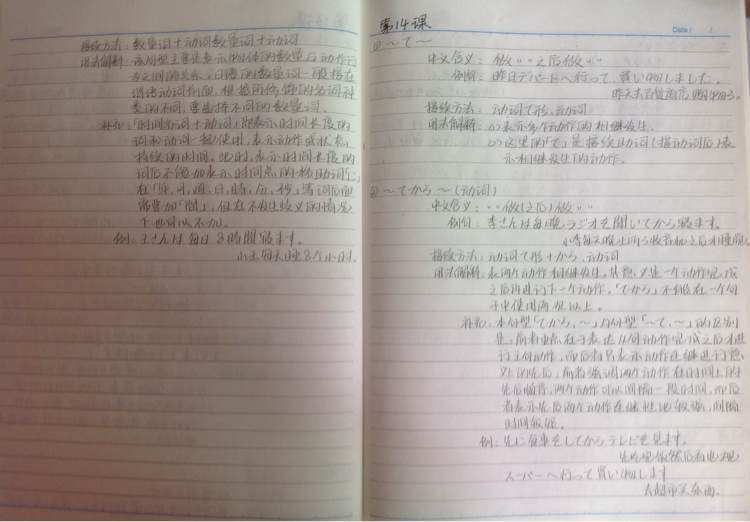 接续方法：数量词+动词数量词+动词
用法解释：该句型主要是表示物体的数量与动作行
为之间的关系，日语的数量词一般接在
谓语动词前面，根据所修饰的名词种
类的不同，要选择不同的数量词。
补充：「时间名词+动词」即表示时间长度的
词和动词一起使用，表示动作或状态
持续的时间。此时，表示时间长度的
词后不能加表示时间点的格助词「に」
在「年、月、週、日、時、分、秒」等词后面
需要加「間」，但在不发生歧义的情况
下也可以不加。
例：王さんは毎日8時間寝ます。
小王每天睡8个小时。
第14课
Date
① ～て～
中文含义：做‥‥之后做‥‥
例句：昨日デパートへ行って、買い物しました。
昨天去百货商店购物了。
接续方法：动词て形，动词
用法解释：(1)表示多个动作的相继发生。
(2)这里的「て」是接续助词(接动词后)表
示相继发生的动作。
② ～てから～（动词）
中文含义：‥‥做(之后)做‥‥
例句：李さんは毎晩ラジオを聞いてから寝ます。
小李每天晚上听了收音机之后才睡觉。
接续方法：动词て形+から、动词
用法解释：表两个动作相继发生。其意义是一个动作完成
之后再进行下一个动作。「てから」不能在一个句
子中使用两次以上。
补充：本句型「てから、～」与句型「～て、～」的区别
是，前者重点在于表达从句动作完成之后才进
行主句动作，而后者只表示动作在继进行
的先后，前者强调两个动作在时间上的
先后顺序，两个动作可以间隔一段时间，而后
者表示先后两个动作在继性地叙述，间隔
时间较短。
例：先に食事をしてからテレビを見ます。
先吃完饭然后看电视
スーパーへ行って買い物します
去超市买东西。